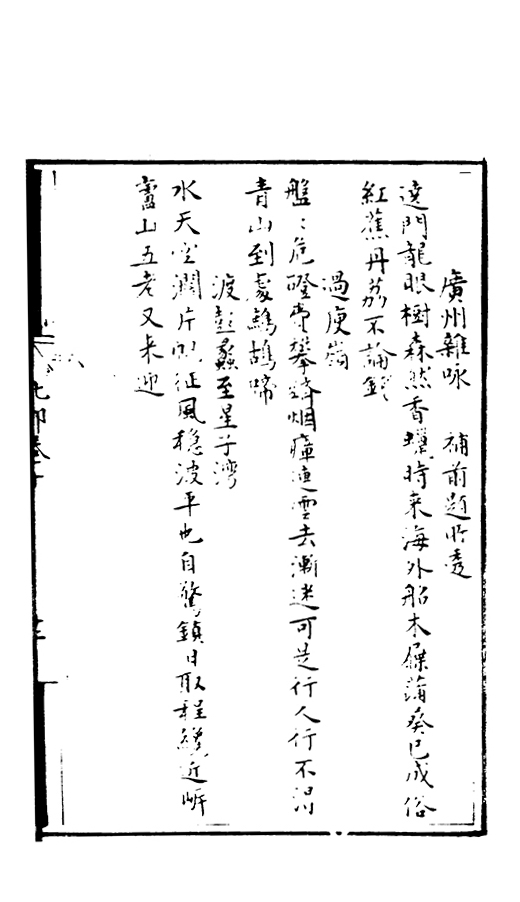 廣州雜咏 補前題所遺
遶門龍眼樹森然香蠟時来海外船木屧蒲葵已成俗
紅蕉丹荔不論錢
過庾嶺
盤〻危磴費攀躋烟瘴連雲去漸迷可是行人行不得
青山到處鷓鴣啼
渡彭蠡至星子灣
水天空濶片帆征風穩波平也自驚鎮日取程纔近岍
蘆山五老又来迎